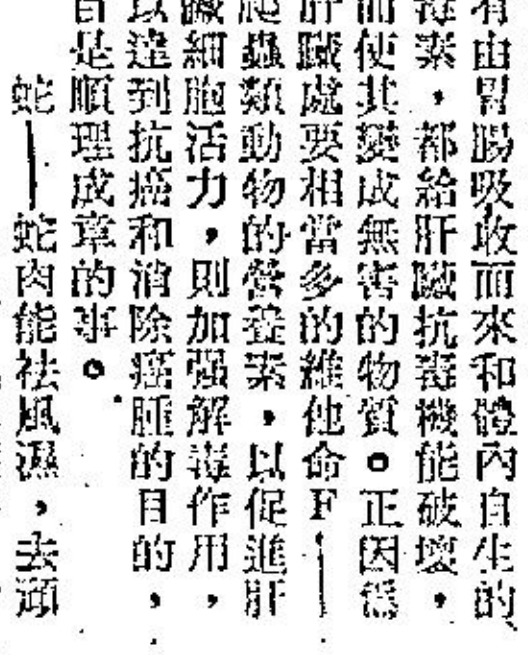 有由胃腸吸收而來和體內自生的
毒素，都給肝臟抗毒機能破壞，
而使其變成無害的物質。正因為
肝臟處要相當多的維他命F——
爬蟲類動物的營養素，以促進肝
臟細胞活力，則加强解毒作用，
以達到抗癌和消除癌腫的目的，
自是順理成章的事。
蛇——蛇肉能祛風濕，去頑